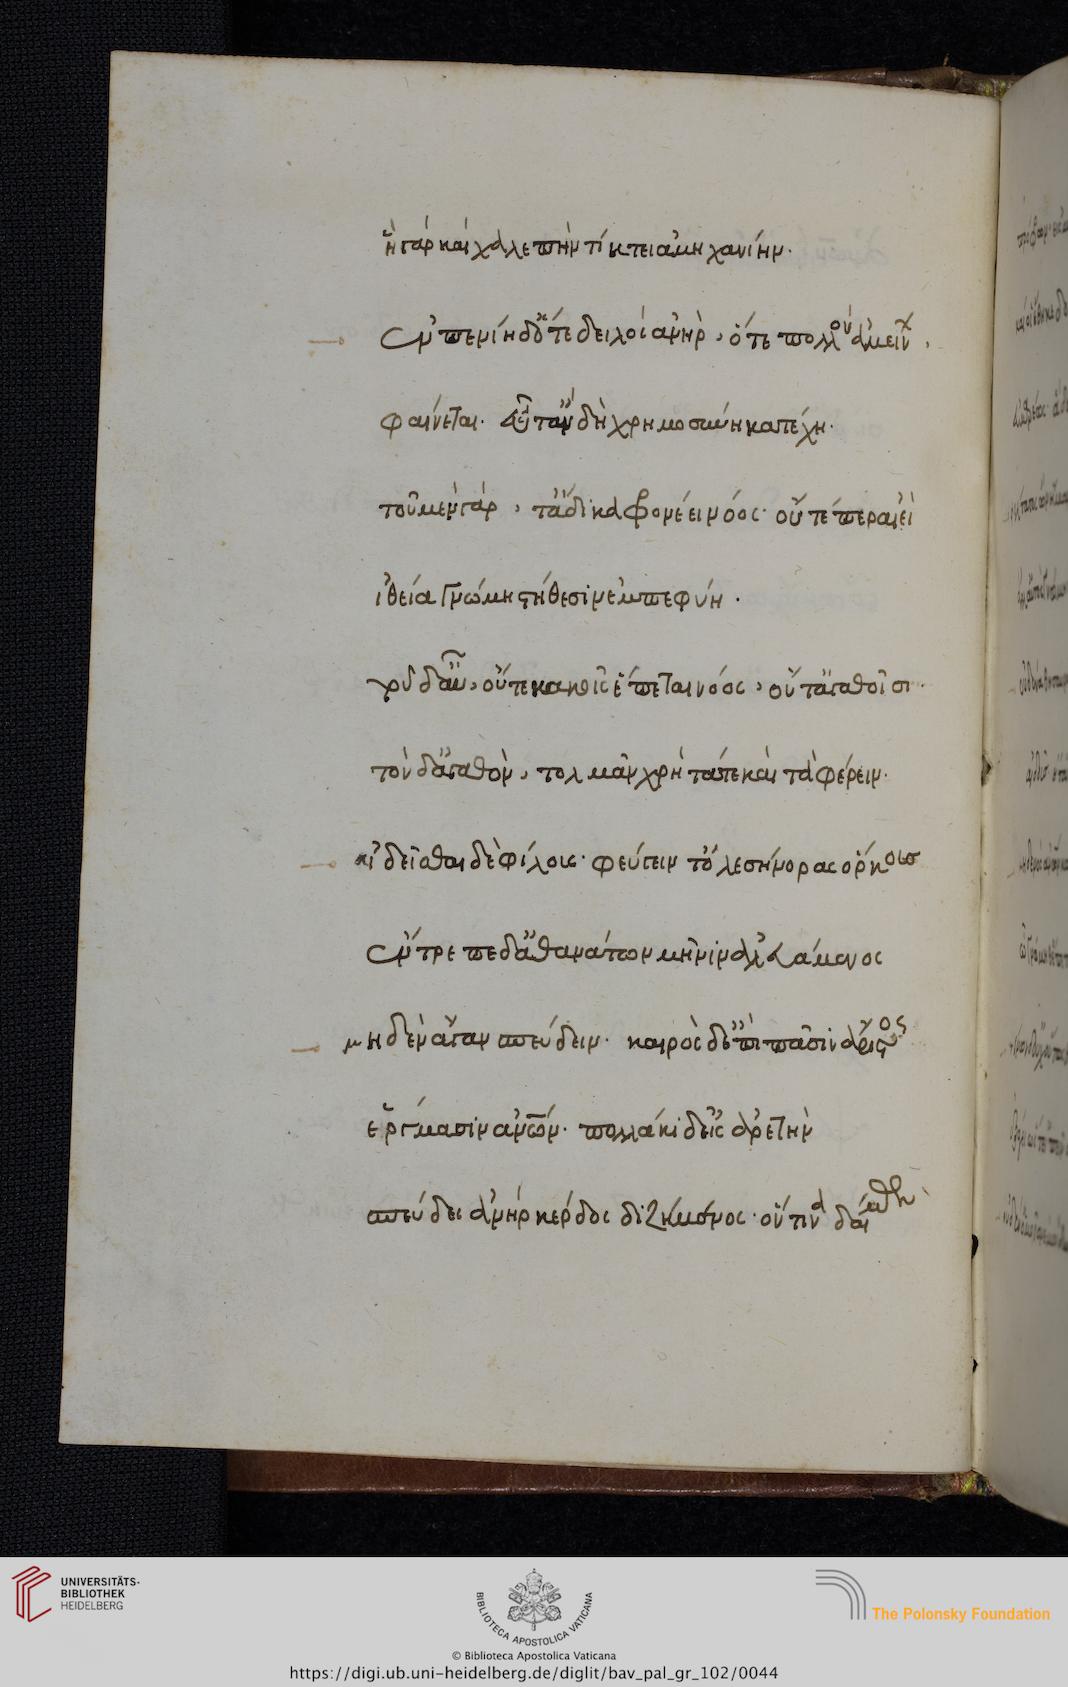 ἣ γὰρ καὶ χαλεπὴν τίκτει ἀμηχανίην.
ἐν πενίη δ' ὅ τε δειλὸς ἀνὴρ, ὅ τε πολλὸν ἀμείνων,
φαίνεται. εὖτ' ἂν δὴ χρημοσύνη κατέχη.
τοῦ μὲν γὰρ, τὰ δίκαια φρονέει νόος. οὗ τέ περ αἰεὶ
ἰθεῖα γνώμη στήθεσιν ἐμπεφύη.
τοῦ δ' αὖ, οὔτε κακοῖς ἕπεται νόος, οὔτ' ἀγαθοῖσι.
τὸν δ' ἀγαθὸν, τολμᾶν χρὴ τά τε καὶ τὰ φέρειν.
αἰδεῖσθαι δὲ φίλους. φεύγειν τ' ὀλεσήνορας ὅρκους
ἐντρέπε δ' ἀθανάτων μῆνιν ἀλευάμενος
μηδὲν ἄγαν σπεύδειν. καιρὸς δ' ἐπὶ πᾶσιν ἄριστος
ἔργμασιν ἀνθρώπων. πολλάκι δ' εἰς ἀρετὴν
σπεύδει ἀνὴρ κέρδος διζήμενος. ὅντινα δαίμων
UNIVERSITÄTS-
BIBLIOTHEK
HEIDELBERG
BIBLIOTECA APOSTOLICA VATICANA
The Polonsky Foundation
© Biblioteca Apostolica Vaticana
https://digi.ub.uni-heidelberg.de/diglit/bav_pal_gr_102/0044